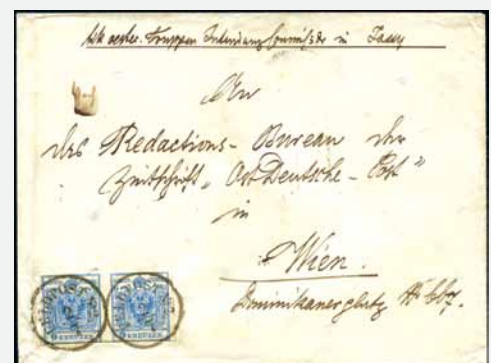 k.k. oester. Truppen Intendanz in Jassy
An
das Redactions-Bureau der
Zeitschrift „Ost Deutsche - Post"
in
Wien.
Dominikanerplatz №
KREUZER KREUZER